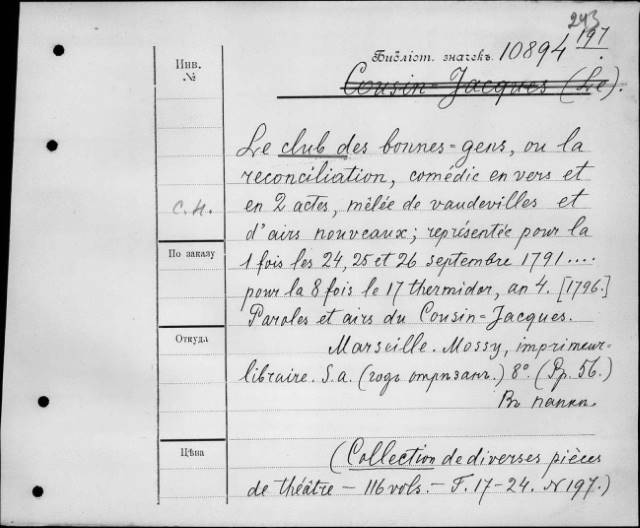 243
197
Библіот. значекъ. 10894
Cousin-Jacques (Le).
Инв.
№
Le club des bonnes-gens, ou la
reconciliation, comédie en vers et
С.Н.
en 2 actes, mêlée de vaudevilles et
d'airs nouveaux; représentée pour la
По заказу
1 fois les 24, 25 et 26 septembre 1791....
pour la 8 fois le 17 thermidor, an 4. [1796.]
Paroles et airs du Cousin-Jacques.
Откуда
Marseille. Mossy, imprimeur-
libraire. S.a. (годъ отрѣзанъ.) 8° (Pp. 56.)
Въ папкѣ.
Цѣна
(Collection de diverses pièces
de théâtre – 116 vols. – F. 17-24. N 197.)